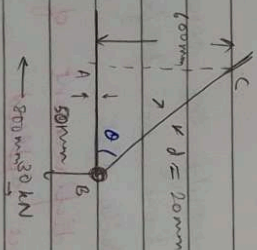 C
600mm
d = 20mm
A
θ
B
50mm
800mm
30 kN